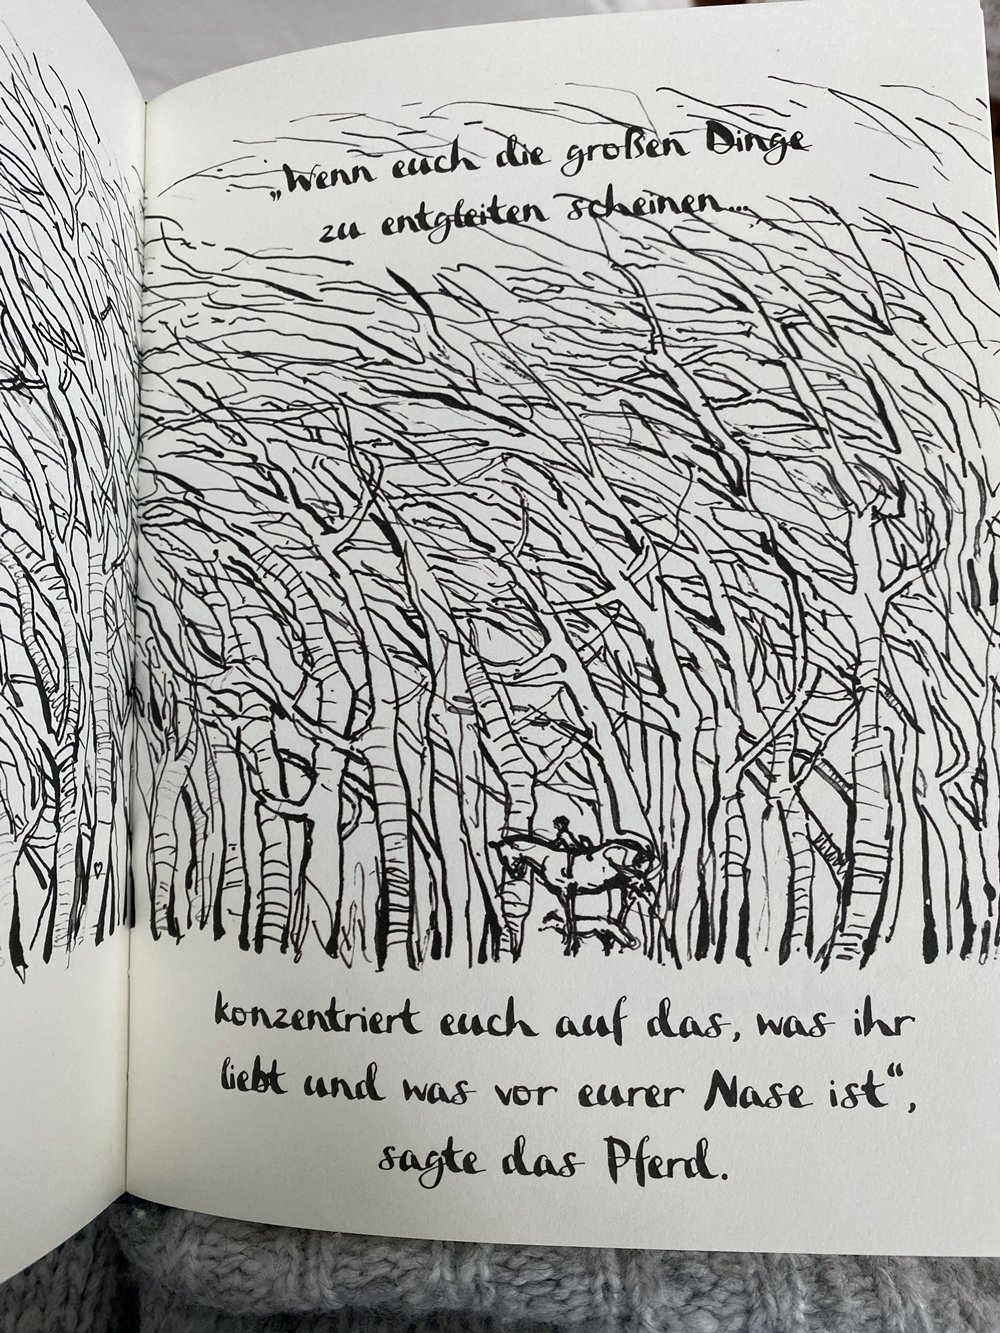 „Wenn euch die großen Dinge
zu entgleiten scheinen...,
konzentriert euch auf das, was ihr
liebt und was vor eurer Nase ist“,
sagte das Pferd.